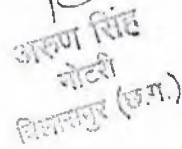 अरूण सिंह
नोटरी
बिलासपुर (छ.ग.)